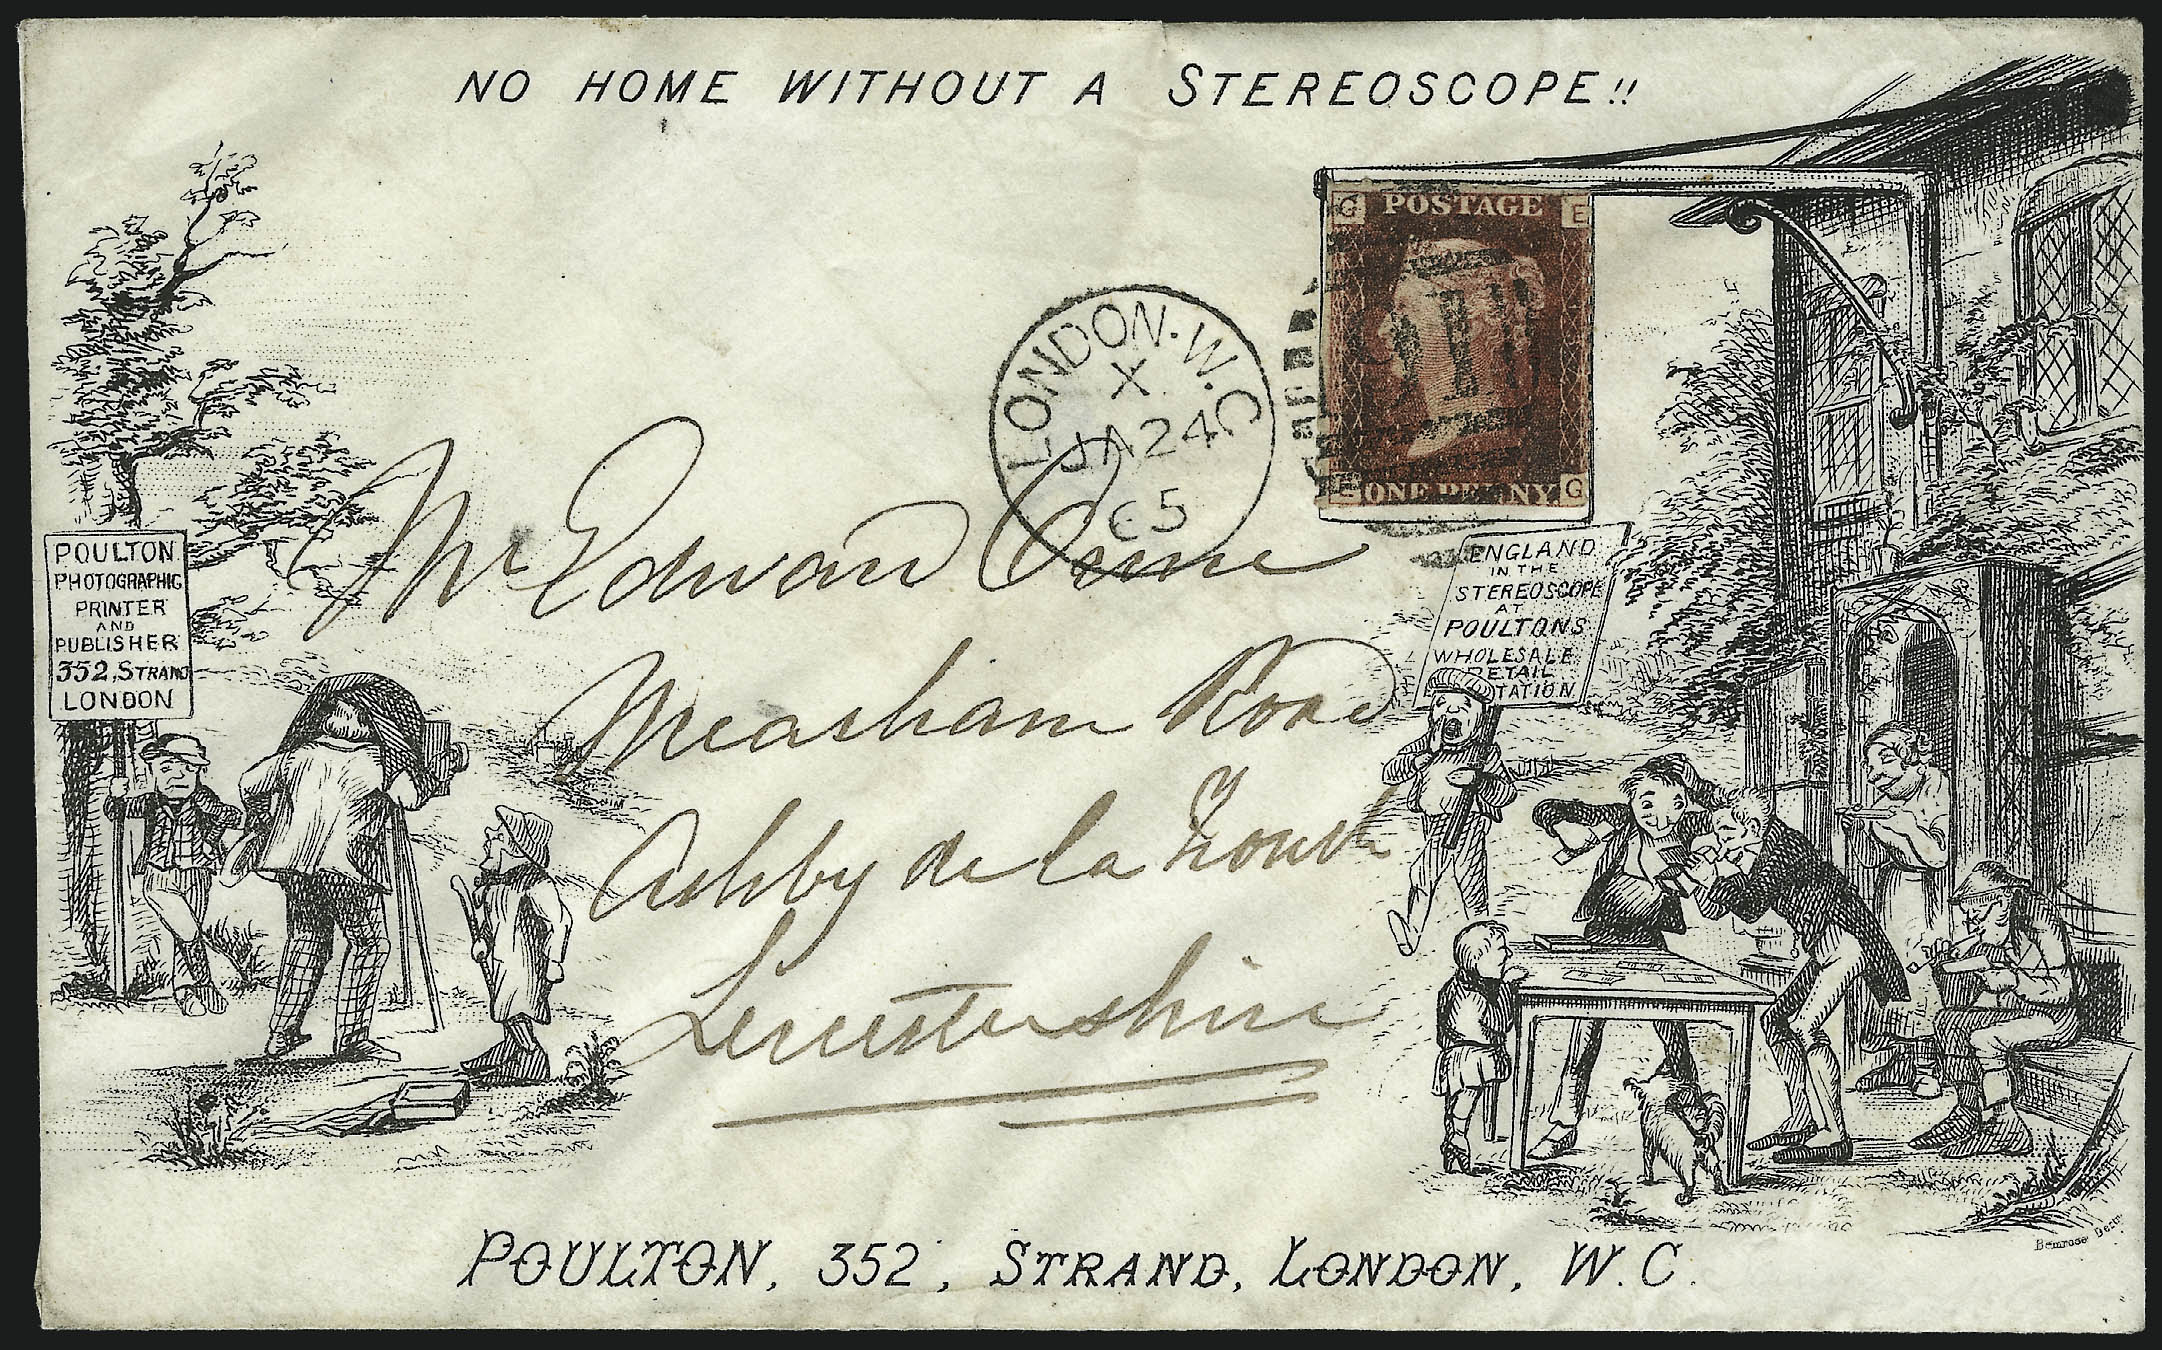 NO HOME WITHOUT A STEREOSCOPE!!
G POSTAGE E
ONE PENNY G
LONDON. W.C
X
JA 24
65
POULTON
PHOTOGRAPHIC
PRINTER
AND
PUBLISHER
352, STRAND
LONDON
ENGLAND
IN THE
STEREOSCOPE
AT
POULTONS
WHOLESALE
RETAIL
TATION
Mr Edward Orme
Measham Road
Ashby de la Zouch
Leicestershire
Bemrose Derby
POULTON, 352, STRAND, LONDON, W.C.